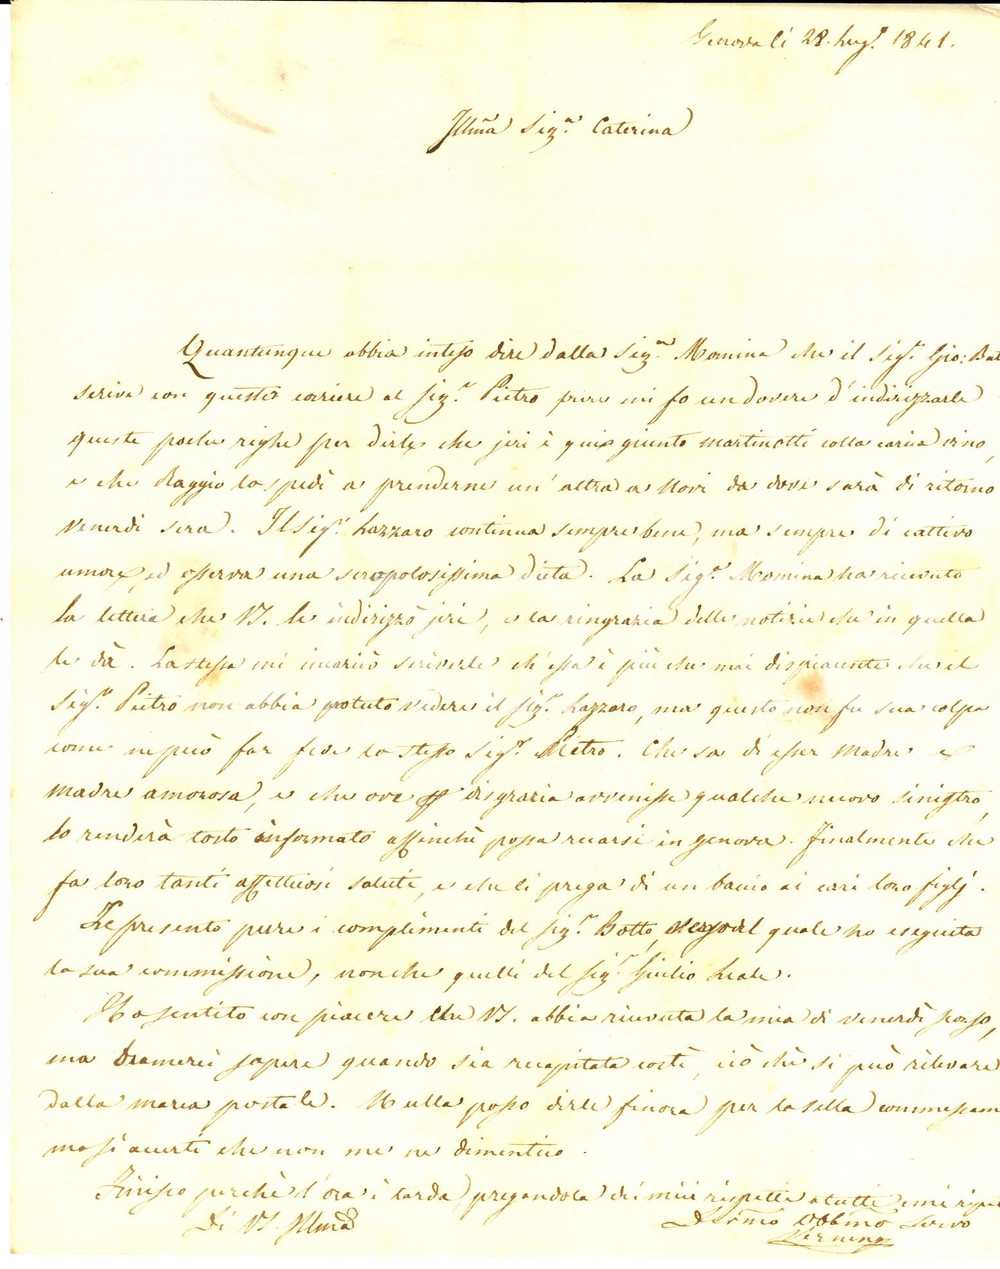 Genova li 28. lug.º 1841.
Illma Sig.ra Caterina
Quantunque abbia inteso dire dalla Sig.ra Momina che il Sig.r Gio: Bat
scrive con questo corriere al Sig.r Pietro pure mi fo un dovere d'indirizzarle
queste poche righe per dirle che jeri è qui giunto Martinotti colla carica vino,
e che Raggio lo spedì a prenderne un'altra a Novi da dove sarà di ritorno
venerdì sera. Il Sig.r Lazzaro continua sempre bene, ma sempre di cattivo
umore, ed osserva una scropolosissima dieta. La Sig.ra Momina ha ricevuto
la lettera che VS. le indirizzò jeri, e la ringrazia delle notizie che in quella
le dà. La stessa mi incaricò scriverle ch'essa è più che mai dispiacente che il
Sig.r Pietro non abbia potuto vedere il Sig.r Lazzaro, ma questo non fu sua colpa
come ne può far fede lo stesso Sig.r Pietro. Che sa di esser madre e
madre amorosa, e che ove disgrazia avvenisse qualche nuovo sinistro,
lo renderà tosto informato affinchè possa recarsi in Genova. Finalmente che
fa loro tanti affettuosi saluti, e che li prega di un bacio ai cari loro figlj.
Le presento pure i complimenti del Sig.r Botto, verso del quale ho eseguita
la sua commissione, nonche quelli del Sig.r Giulio Reale.
Ho sentito con piacere che VS. abbia ricevuta la mia di venerdì scorso,
ma bramerei sapere quando sia recapitata costì, ciò che si può rilevare
dalla marca postale. Nulla posso dirle finora per la sella commessam
ma si accerti che non me ne dimentico.
Finisco perchè l'ora è tarda, pregandola dei miei rispetti a tutti e mi ripe
Di VS. Illma
Devmo Obblmo Servo